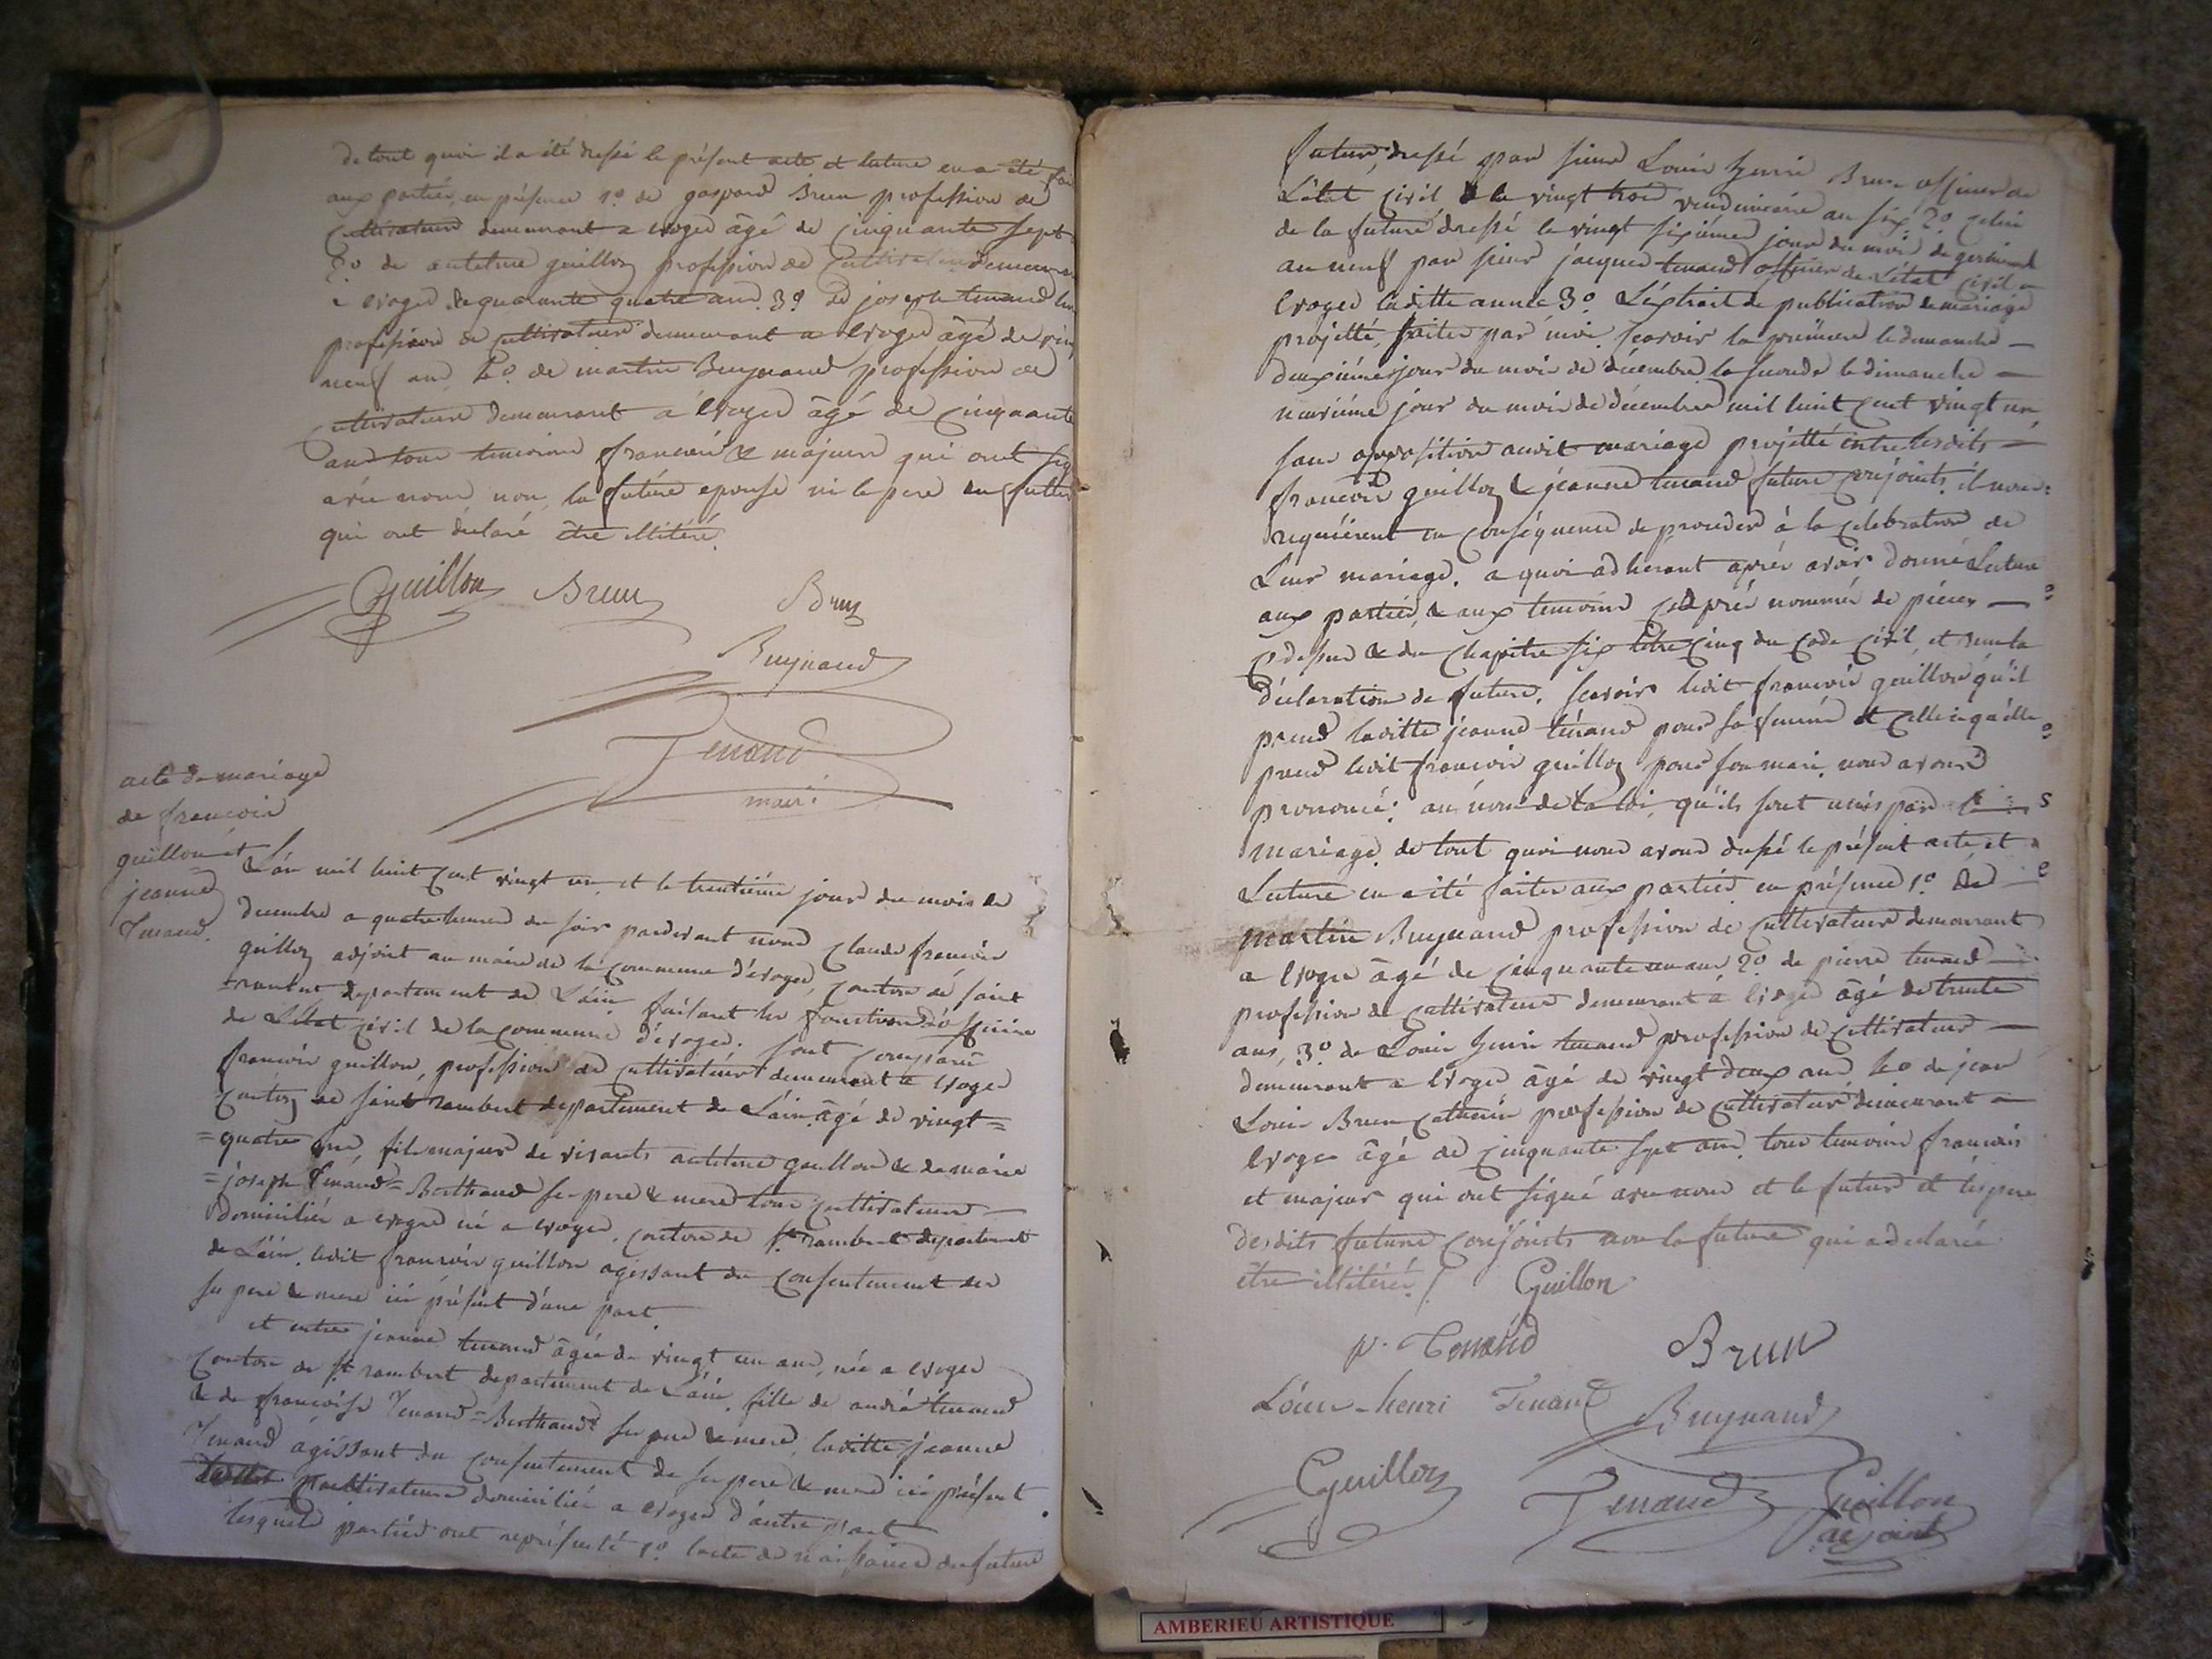 de tout quoi il a été dressé le présent acte et lecture en a été fai
aux parties en présence 1º de gaspard Brun profession de
cultivateur demeurant a evoges âgé de cinquante sept
2º de antelme guillon profession de cultivateur demeura
a evoges de quarante quatre ans 3º de joseph tenand
profession de cultivateur demeurant a evoges âgé de vin
neuf ans 4º de martin Buynand profession de
cultivateur demeurant a évoges âgé de cinquante
ans tous temoins francais & majeurs qui ont sig
avec nous non la future epouse ni le pere du futur
qui ont declaré être illitéré.
Guillon Brun Brun
Buynand
Tenand
maire
acte de mariage
de francois
guillon et
jeanne
Tenand.
L'an mil huit cent vingt un et le trentième jour du mois de
decembre a quatre heures du soir pardevant nous Claude francois
guillon adjoint au maire de la commune d'évoges, canton de saint
rambert departement de L'ain faisant les fonctions d'officier
de L'état civil de la commune d'évoges. sont comparu
francois guillon, profession de cultivateur demeurant a evoges
canton de saint rambert departement de L'ain âgé de vingt =
= quatre ans, fils majeur de vivants antelme guillon & de marie
= joseph Tenand = Berthaud ses pere & mere tous cultivateurs
domiciliés a evoges né a evoges, canton de st rambert departement
de L'ain, ledit francois guillon agissant du consentement de
ses pere & mere ici présent d'une part
et entre jeanne tenand âgée de vingt un ans, née a evoges
canton de st rambert departement de L'ain, fille de andré tenand
& de francoise Tenand = Berthaud ses pere & mere, laditte jeanne
Tenand agissant du consentement de ses pere & mere ici présent
cultivateurs domiciliés a evoges d'autre part
lesquels parties ont représenté 1º l'acte de naissance du future
futur, dressé par sieur Louis henri Brun officier de
L'état civil le vingt trois vendemiaire an six 2º celui
de la future dressé le vingt sixième jour du mois de germinal
an neuf par sieur jacques tenand officier de L'état civil a
evoges laditte année 3º L'éxtrait de publication de mariage
projetté, faites par moi scavoir la première le dimanche —
deuxième jour du mois de décembre la seconde le dimanche —
neuvième jour du mois de décembre mil huit cent vingt un,
sans opposition audit mariage projetté entre lesdits —
francois guillon & jeanne tenand future conjoints il nous
requièrent en conséquence de proceder à la célébration de
Leur mariage. a quoi adherant après avoir donné lecture
aux parties, & aux temoins ci après nommés de pièces —
ci dessus & du chapitre six titre cinq du code civil, et sur la
déclaration de future. scavoir ledit francois guillon qu'il
prend laditte jeanne ténand pour sa femme et celle ci qu'elle
prend ledit francois guillon pour son mari. nous avons
prononcé: au nom de la loi, qu'ils sont unis par le
mariage. de tout quoi nous avons dressé le présent acte et
Lecture en a été faites aux parties en présence 1º de
martin Buynand profession de cultivateur demeurant
a evoges âgé de cinquante un ans 2º de pierre tenand
profession de cultivateur demeurant a evoges âgé de trente
ans, 3º de Louis henri tenand profession de cultivateur —
demeurant a evoges âgé de vingt deux ans 4º de jean
Louis Brun profession de cultivateur demeurant —
evoges âgé de cinquante sept ans, tous temoins francais
et majeur qui ont signé avec nous et le futur et les pere
desdits future conjoints non la future qui a declarée
être illitéré. Guillon
p. Tenand Brun
Louis-henri Tenand Buynand
Guillon Tenand Guillon
adjoint
AMBERIEU ARTISTIQUE